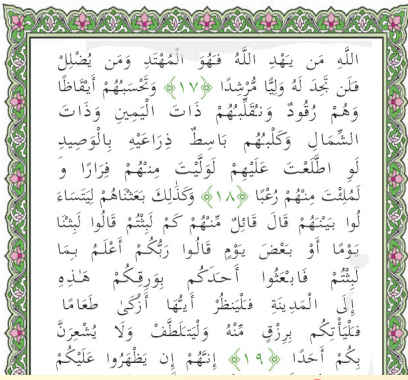 اللَّهِ مَن يَهْدِ اللَّهُ فَهُوَ الْمُهْتَدِ وَمَن يُضْلِلْ
فَلَن تَجِدَ لَهُ وَلِيًّا مُّرْشِدًا ﴿١٧﴾ وَتَحْسَبُهُمْ أَيْقَاظًا
وَهُمْ رُقُودٌ وَنُقَلِّبُهُمْ ذَاتَ الْيَمِينِ وَذَاتَ
الشِّمَالِ وَكَلْبُهُم بَاسِطٌ ذِرَاعَيْهِ بِالْوَصِيدِ
لَوِ اطَّلَعْتَ عَلَيْهِمْ لَوَلَّيْتَ مِنْهُمْ فِرَارًا وَ
لَمُلِئْتَ مِنْهُمْ رُعْبًا ﴿١٨﴾ وَكَذَٰلِكَ بَعَثْنَاهُمْ لِيَتَسَاءَ
لُوا بَيْنَهُمْ قَالَ قَائِلٌ مِّنْهُمْ كَمْ لَبِثْتُمْ قَالُوا لَبِثْنَا
يَوْمًا أَوْ بَعْضَ يَوْمٍ قَالُوا رَبُّكُمْ أَعْلَمُ بِمَا
لَبِثْتُمْ فَابْعَثُوا أَحَدَكُم بِوَرِقِكُمْ هَٰذِهِ
إِلَى الْمَدِينَةِ فَلْيَنظُرْ أَيُّهَا أَزْكَىٰ طَعَامًا
فَلْيَأْتِكُم بِرِزْقٍ مِّنْهُ وَلْيَتَلَطَّفْ وَلَا يُشْعِرَنَّ
بِكُمْ أَحَدًا ﴿١٩﴾ إِنَّهُمْ إِن يَظْهَرُوا عَلَيْكُمْ